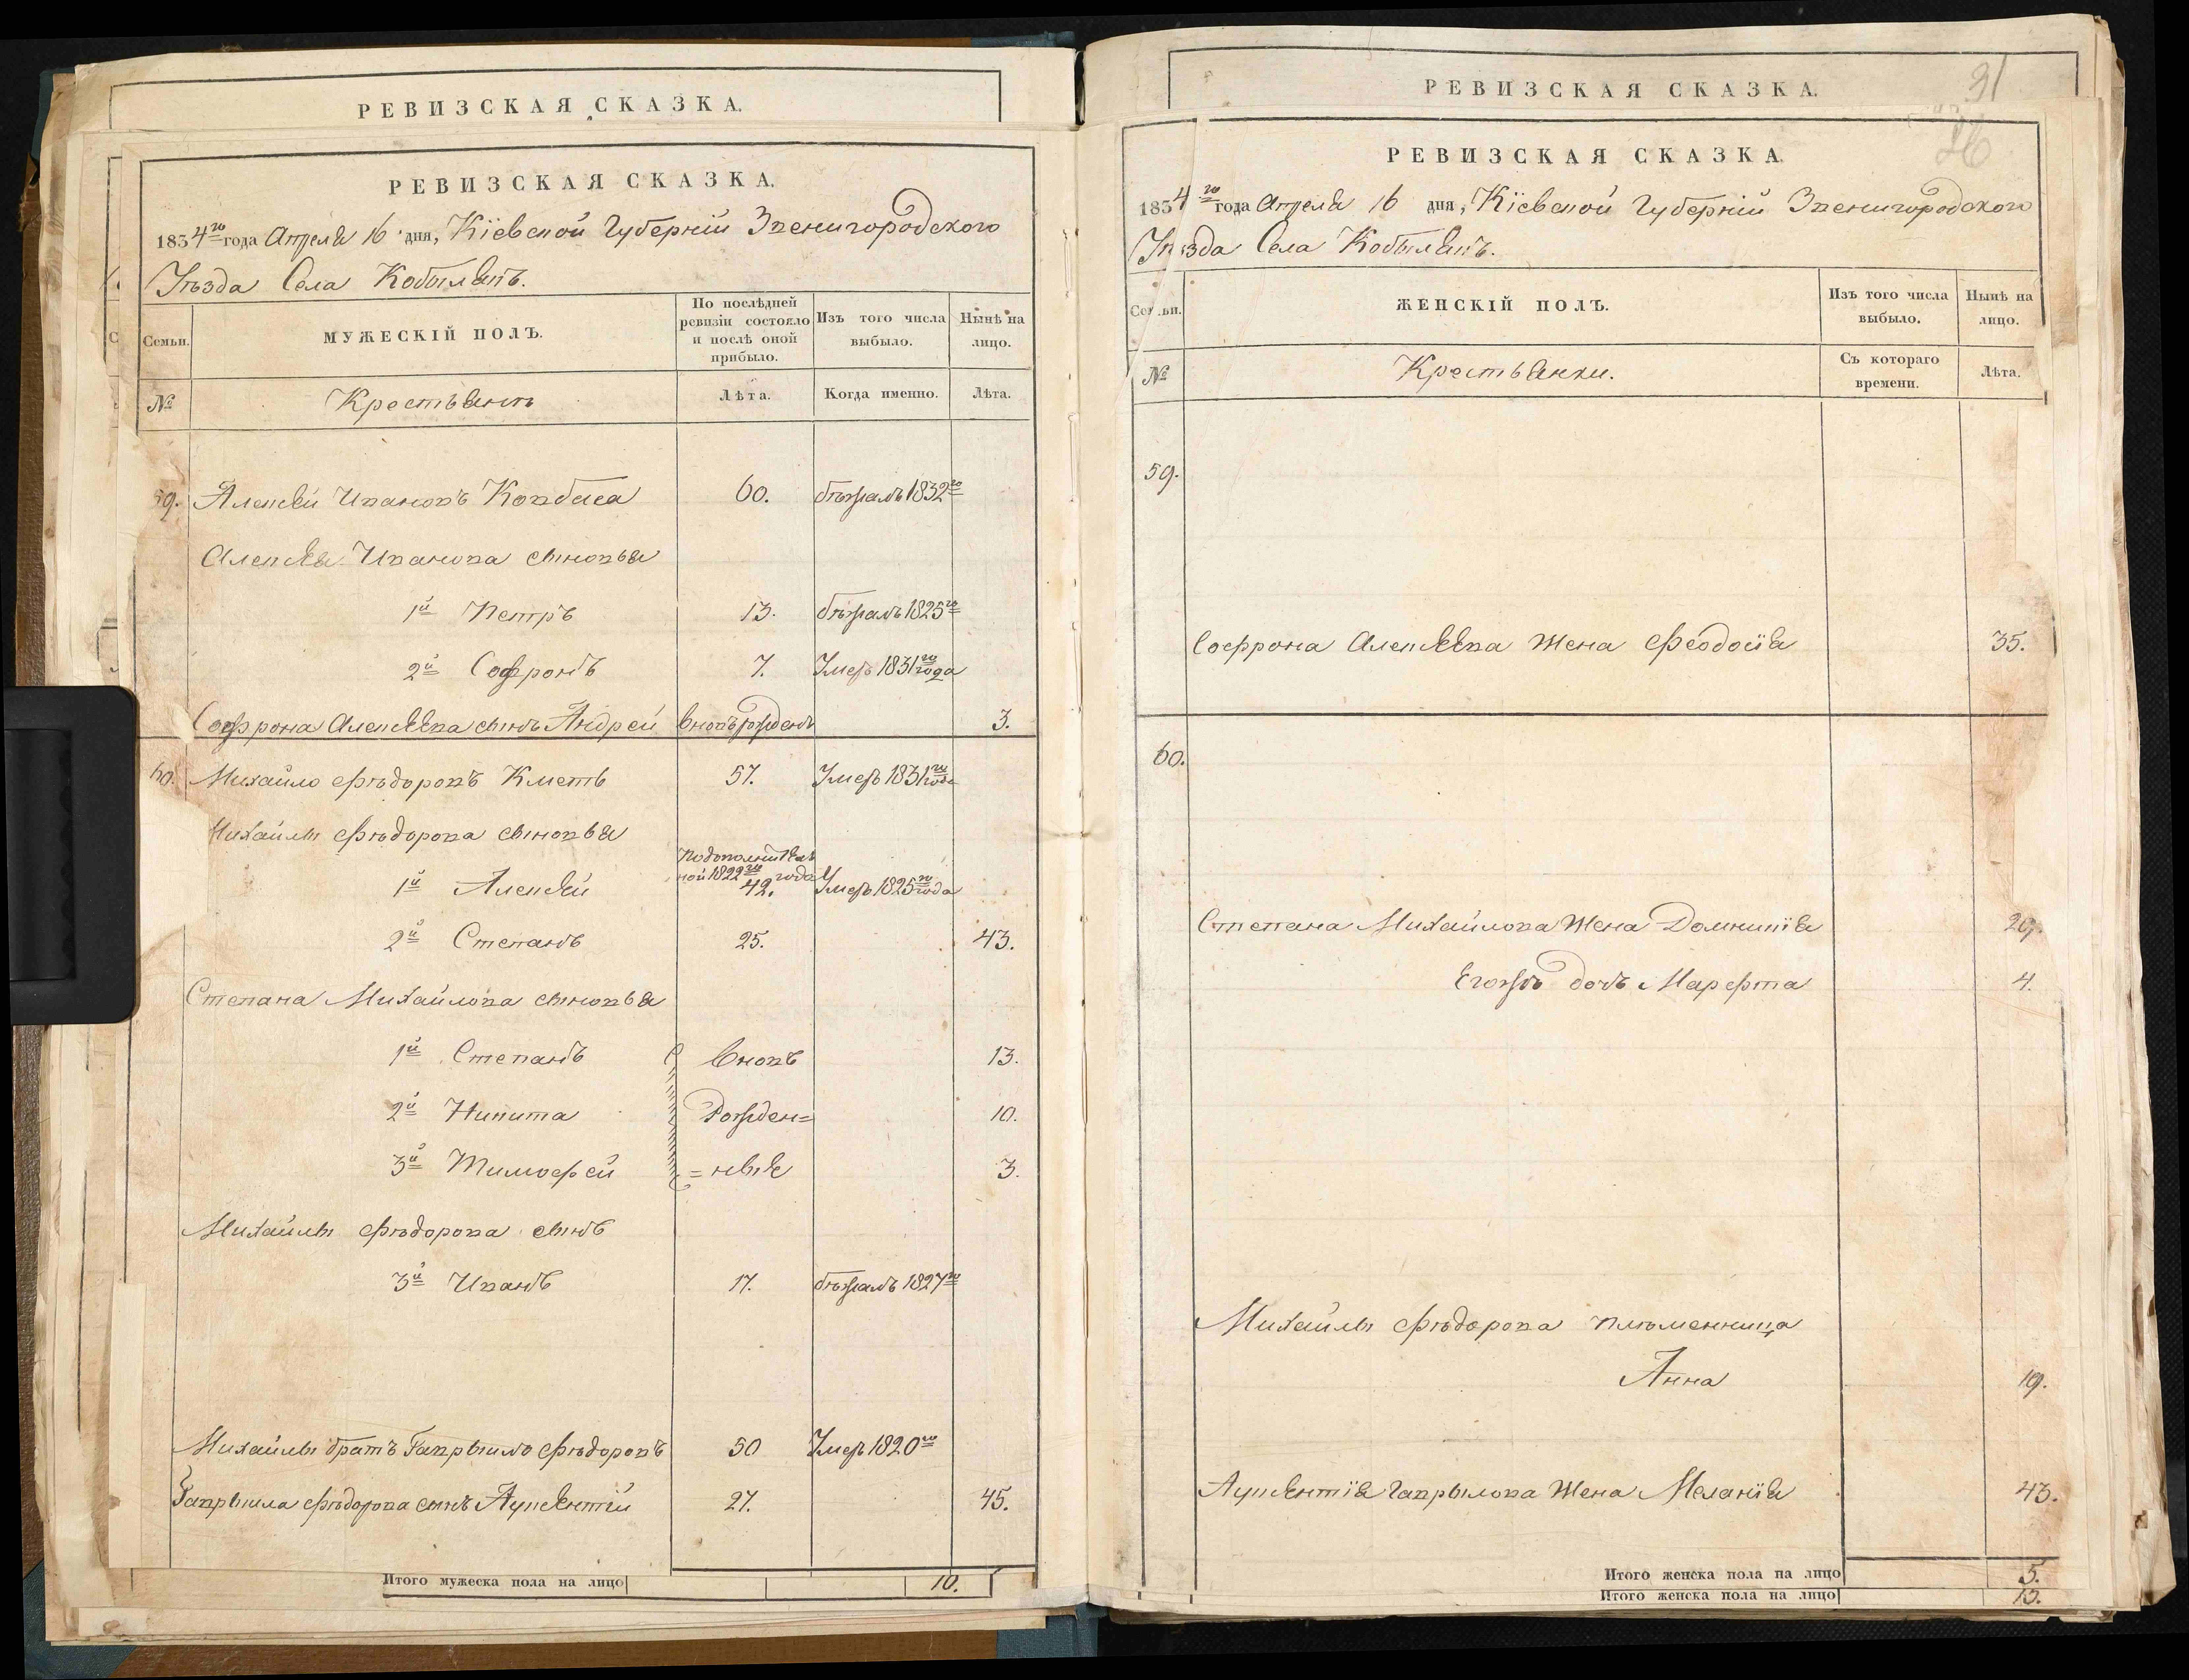 РЕВИЗСКАЯ СКАЗКА.
РЕВИЗСКАЯ СКАЗКА.
1834го года Апреля 16 дня, Кіевской Губерніи Звенигородского
Уѣзда Села Кобылякъ.
Семьи.
МУЖЕСКІЙ ПОЛЪ.
По послѣдней ревизіи состояло и послѣ оной прибыло.
Изъ того числа выбыло.
Нынѣ на лицо.
№
Крестьянъ
Лѣта.
Когда именно.
Лѣта.
59. Алексѣй Ивановъ Ковбаса 60. бѣжалъ 1832го
Алексѣя Иванова сыновья
1й Петръ 13. бѣжалъ 1825го
2й Софронъ 7. Умеръ 1831го года
Софрона Алексѣева сынъ Андрей вновьрожденъ 3.
60. Михайло Фѣдоровъ Кметь 57. Умеръ 1831го года
Михайлы Фѣдорова сыновья
1й Алексѣй
ной 1822го года
42. Умеръ 1825го года
2й Степанъ 25. 43.
Степана Михайлова сыновья
1й Степанъ Вновь 13.
2й Никита Рожден= 10.
3й Тимофей =ныѣ 3.
Михайлы Фѣдорова сынъ
3й Иванъ 17. бѣжалъ 1827го
Михайлы братъ Гаврыило Фѣдоровъ 50 Умеръ 1820го
Гаврыила Фѣдорова сынъ Ауксентій 27. 45.
Итого мужеска пола на лицо 10.
РЕВИЗСКАЯ СКАЗКА.
91
РЕВИЗСКАЯ СКАЗКА.
26
1834го года Апреля 16 дня, Кіевской Губерніи Звенигородского
Уѣзда Села Кобылякъ.
Семьи.
ЖЕНСКІЙ ПОЛЪ.
Изъ того числа выбыло.
Нынѣ на лицо.
№
Крестьянки.
Съ котораго времени.
Лѣта.
59.
Софрона Алексѣева Жена Феодосія 35.
60.
Степана Михайлова Жена Домникія 29.
Егожъ дочь Марфта 4.
Михайлы Фѣдорова плѣменница
Анна 19.
Ауксентія Гаврылова Жена Меланія 43.
Итого женска пола на лицо 5.
Итого женска пола на лицо 13.